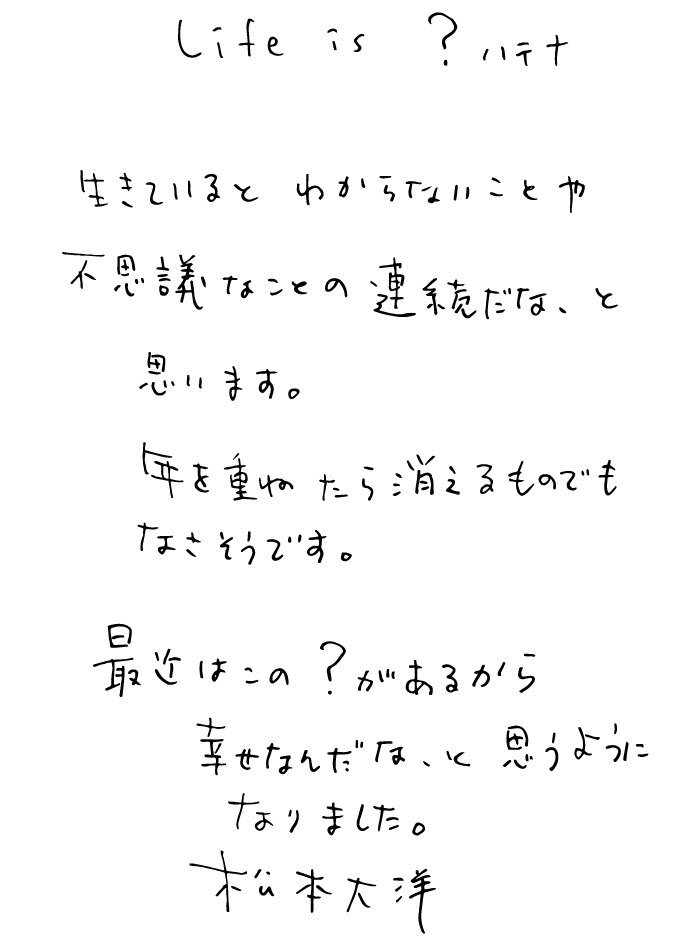 Life is ? ハテナ
生きていると わからないことや
不思議なことの連続だな、と
思います。
年を重ねたら消えるものでも
なさそうです。
最近はこの?があるから
幸せなんだな、と思うように
なりました。
松本大洋